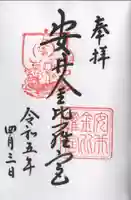 奉拝
安井金比羅宮
令和五年
四月三日